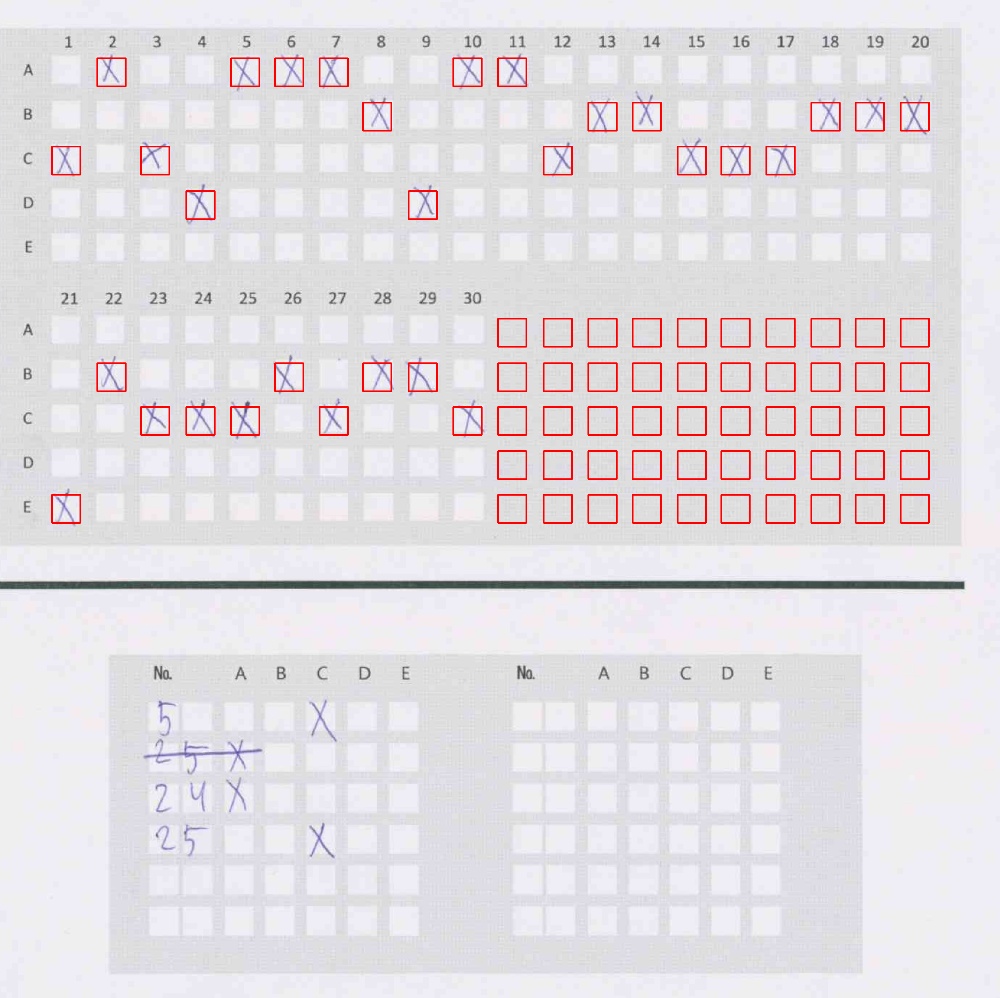 1 2 3 4 5 6 7 8 9 10 11 12 13 14 15 16 17 18 19 20
A X X X X X X
B X X X X X X
C X X X X X X
D X X
E
21 22 23 24 25 26 27 28 29 30
A
B X X X X
C X X X X X
D
E X
No. A B C D E No. A B C D E
5 X
25 X
24 X
25 X